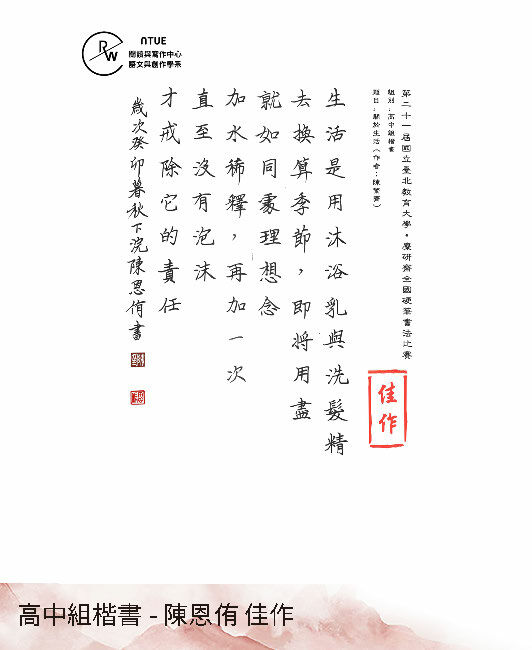 NTUE
RW
閱讀與寫作中心
語文與創作學系
第二十一屆國立臺北教育大學。麋研齋全國硬筆書法比賽
組別：高中組楷書
題目：關於生活（作者：陳繁齊）
佳作
生活是用沐浴乳與洗髮精
去換算季節，即將用盡
就如同處理想念
加水稀釋，再加一次
直至沒有泡沫
才戒除它的責任
歲次癸卯暮秋下浣陳恩侑書
高中組楷書 - 陳恩侑 佳作